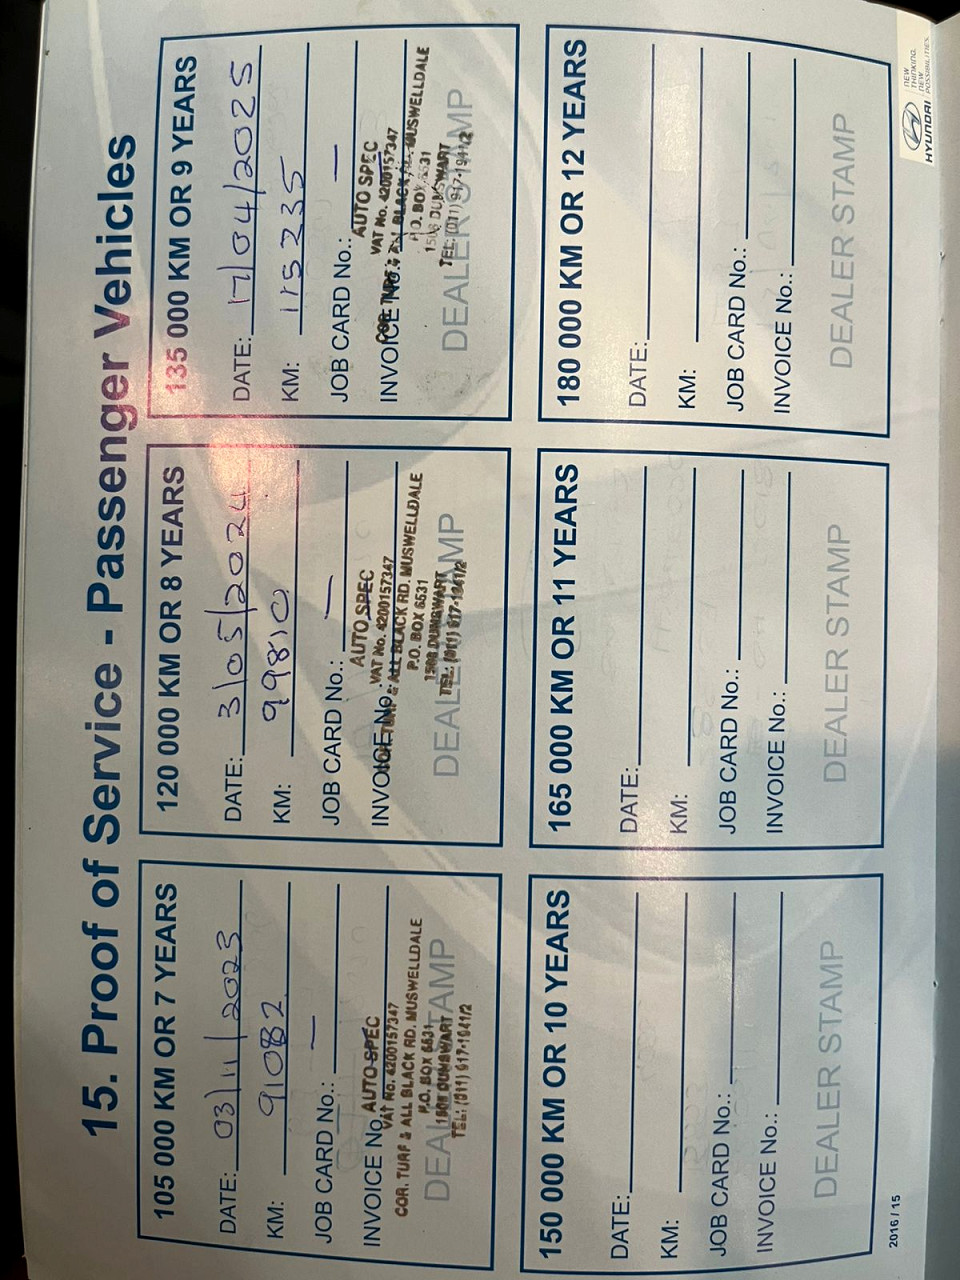 15. Proof of Service - Passenger Vehicles
105 000 KM OR 7 YEARS
DATE: 03/11/2023
KM: 91082
JOB CARD No.: —
INVOICE No.
AUTO SPEC
VAT No. 4200157347
COR. TURF & ALL BLACK RD. MUSWELLDALE
P.O. BOX 6531
1508 DUNSWART
TEL: (011) 917-1941/2
DEALER STAMP
120 000 KM OR 8 YEARS
DATE: 3/05/2024
KM: 99810
JOB CARD No.: —
INVOICE No.:
AUTO SPEC
VAT No. 4200157347
TURF & ALL BLACK RD. MUSWELLDALE
P.O. BOX 6531
1508 DUNSWART
TEL: (011) 917-1941/2
DEALER STAMP
135 000 KM OR 9 YEARS
DATE: 17/04/2025
KM: 115235
JOB CARD No.: —
INVOICE No.:
AUTO SPEC
VAT No. 4200157347
COR. TURF & ALL BLACK MUSWELLDALE
P.O. BOX 6531
1508 DUNSWART
TEL: (011) 917-1941/2
DEALER STAMP
150 000 KM OR 10 YEARS
DATE:
KM:
JOB CARD No.:
INVOICE No.:
DEALER STAMP
165 000 KM OR 11 YEARS
DATE:
KM:
JOB CARD No.:
INVOICE No.:
DEALER STAMP
180 000 KM OR 12 YEARS
DATE:
KM:
JOB CARD No.:
INVOICE No.:
DEALER STAMP
2016 / 15
HYUNDAI
NEW
THINKING.
NEW
POSSIBILITIES.